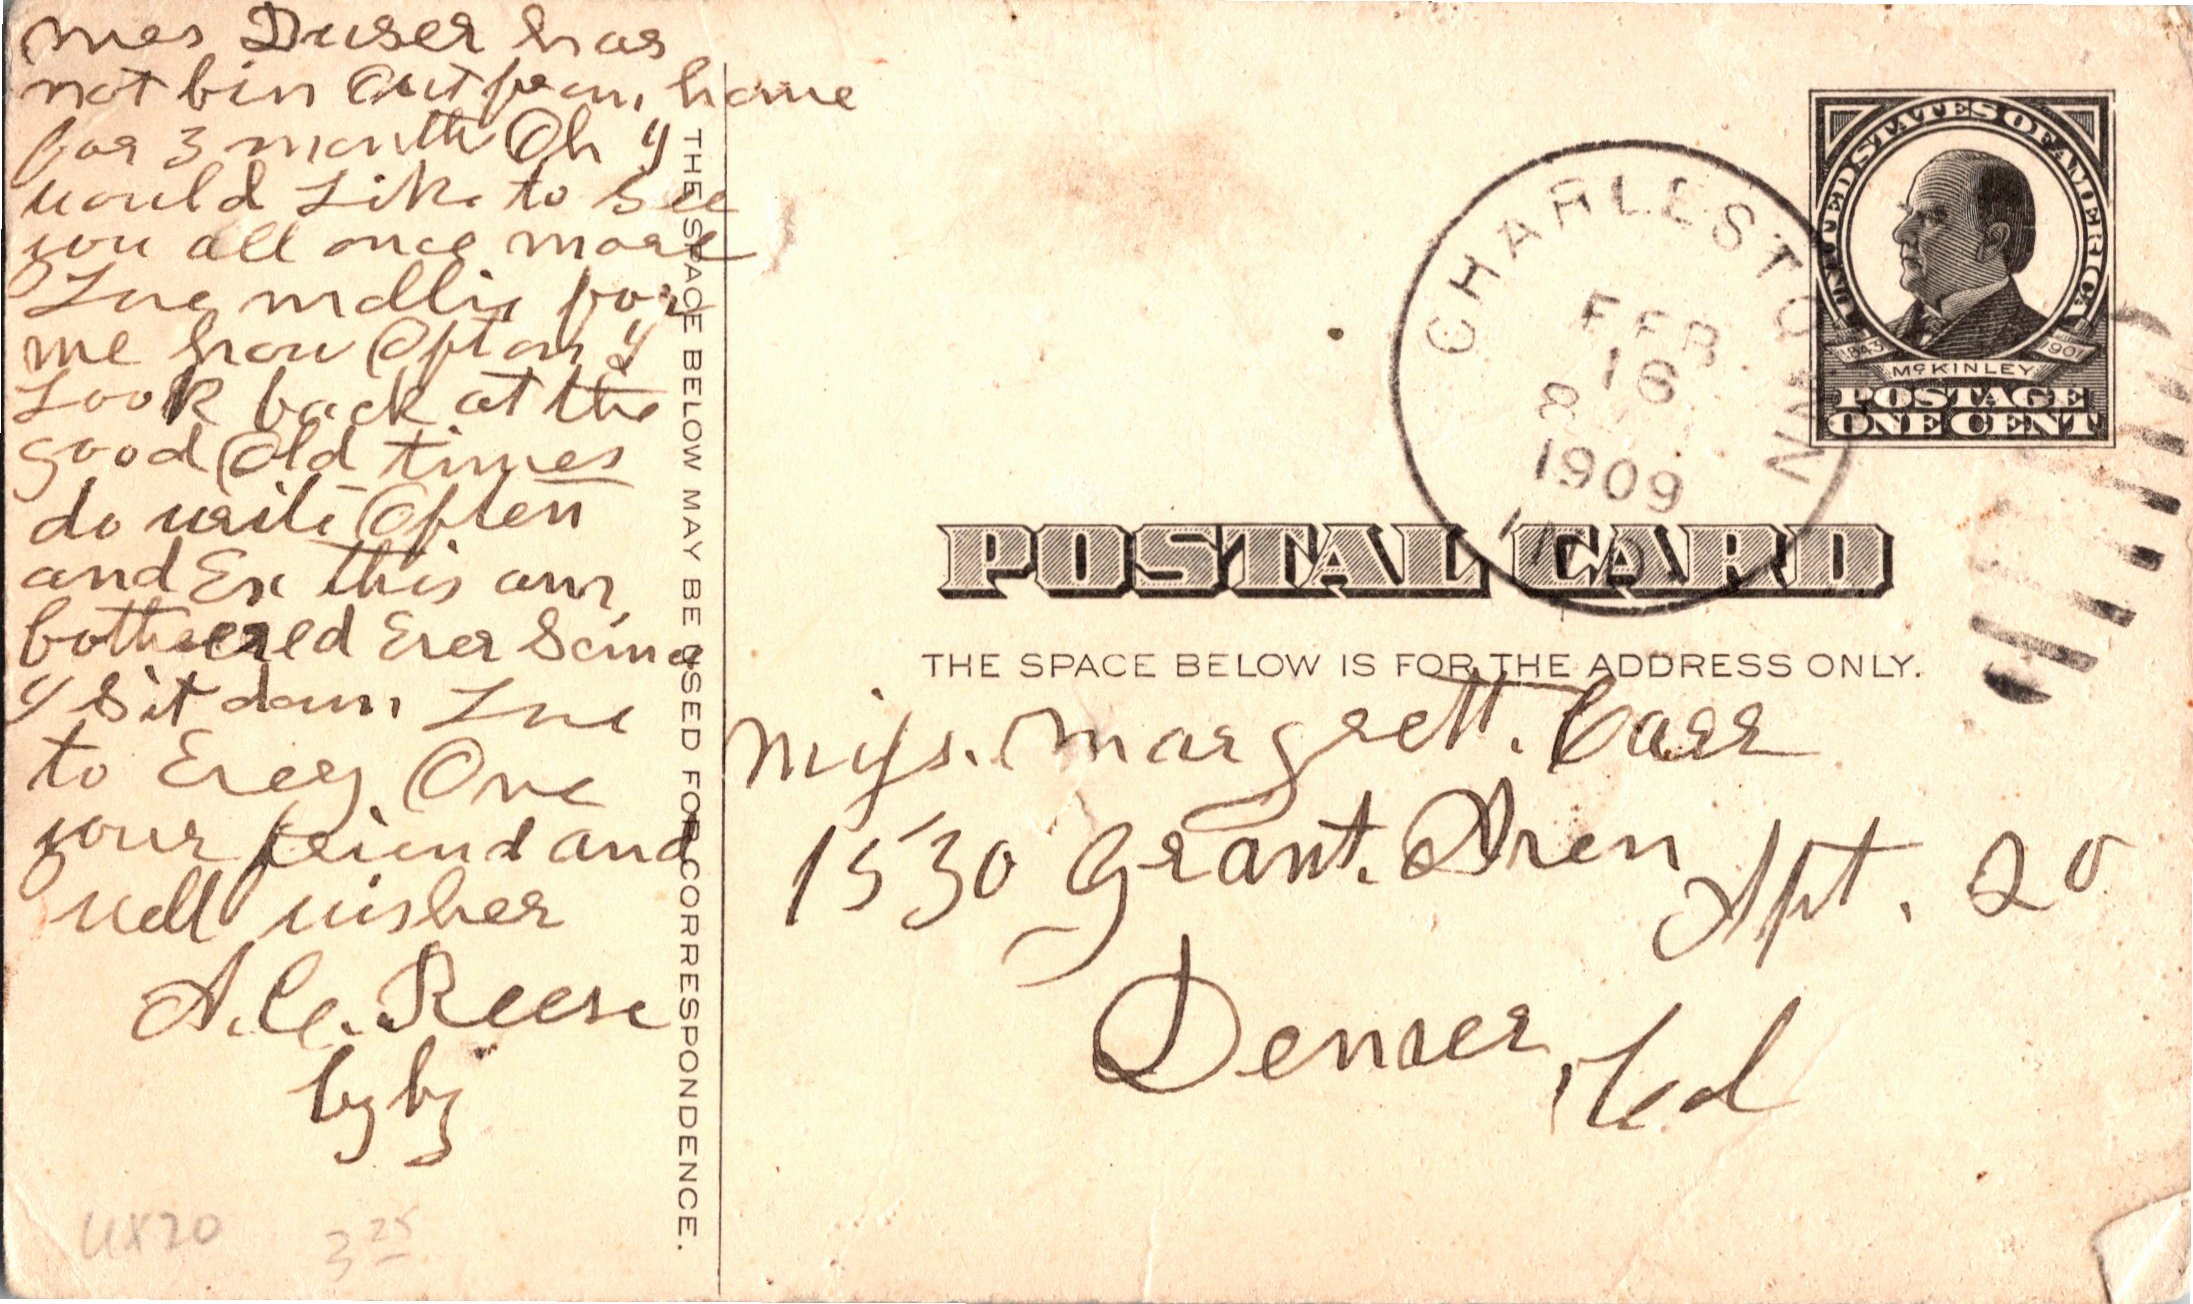 mrs Duser has
not bin Out from home
for 3 month Oh y
would Like to See
you all once more
Love mollie for
me how Often y
Look back at the
good Old times
do write Often
and Ex this am
bothered Ever Sence
y Sit down Love
to Every One
your friend and
well wisher
A. C. Reese
by by
UX20
3 25
THE SPACE BELOW MAY BE USED FOR CORRESPONDENCE.
UNITED STATES OF AMERICA
1843 1901
McKINLEY
POSTAGE
ONE CENT
CHARLESTOWN
FEB
16
8
1909
IND
POSTAL CARD
THE SPACE BELOW IS FOR THE ADDRESS ONLY.
Miss. Margrett. Carr
1530 Grant. Aven
Apt. 20
Denver,